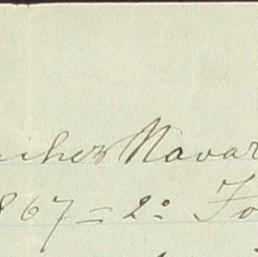 nchez Navar
867 = 2º Fo